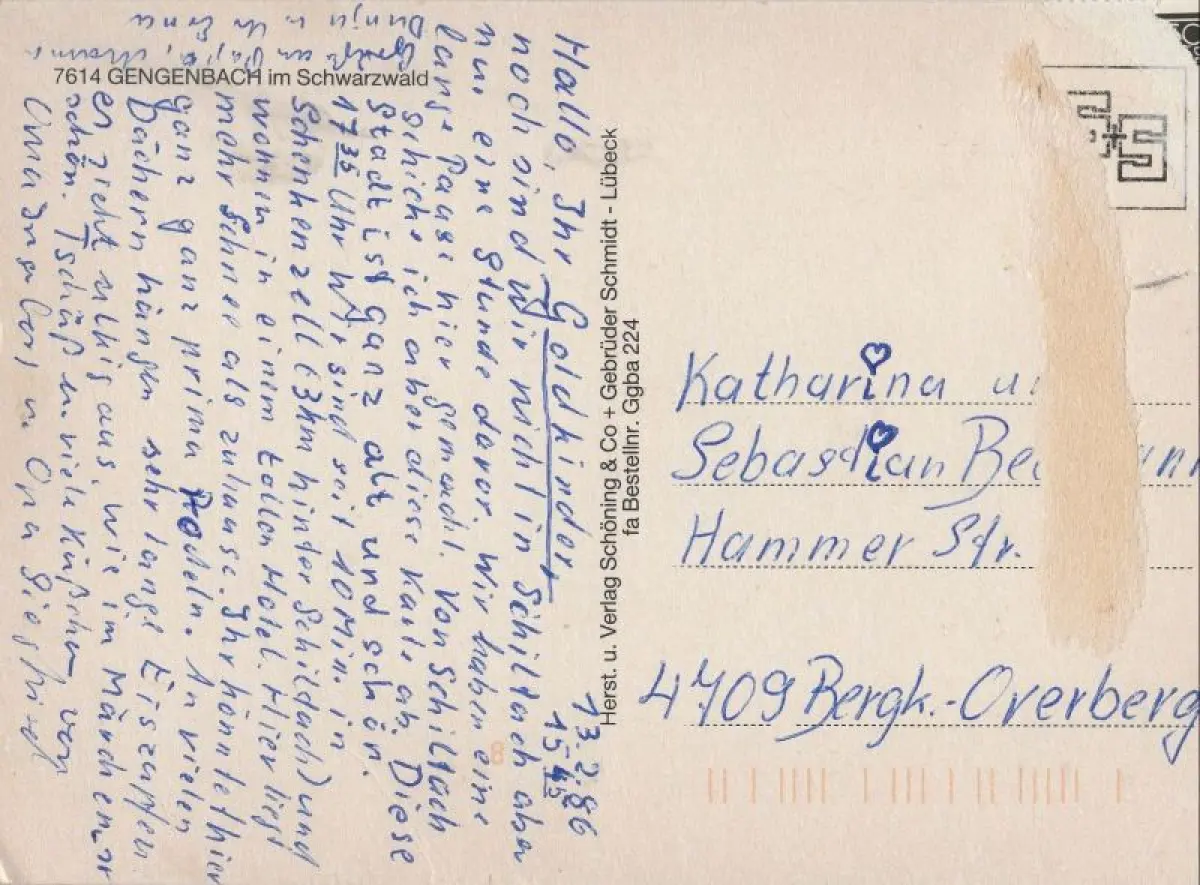 7614 GENGENBACH im Schwarzwald
13.2.86
15 45
Hallo, Ihr Goldkinder,
noch sind wir nicht in Schiltach aber
nur eine Stunde davor. Wir haben eine
lange Pause hier gemacht. Von Schiltach
schicke ich aber diese Karte ab. Diese
Stadt ist ganz alt und schön.
17 35 Uhr Wir sind seit 10 Min. in
Schenkenzell (3km hinter Schiltach) und
wohnen in einem tollen Hotel. Hier liegt
mehr Schnee als zuhause. Ihr könntet hier
ganz ganz prima rodeln. An vielen
Dächern hängen sehr lange Eiszapfen
es sieht alles aus, wie im Märchen, so
schön. Tschüß u. viele Küßchen von
Oma Ingeborg u. Opa Siegfried
Grüße an Papa, Mami
Dunja u. Ur Oma
Herst. u. Verlag Schöning & Co + Gebrüder Schmidt - Lübeck
fa Bestellnr. Ggba 224
Katharina u.
Sebastian
Hammer Str.
4709 Bergk.-Overberge
8